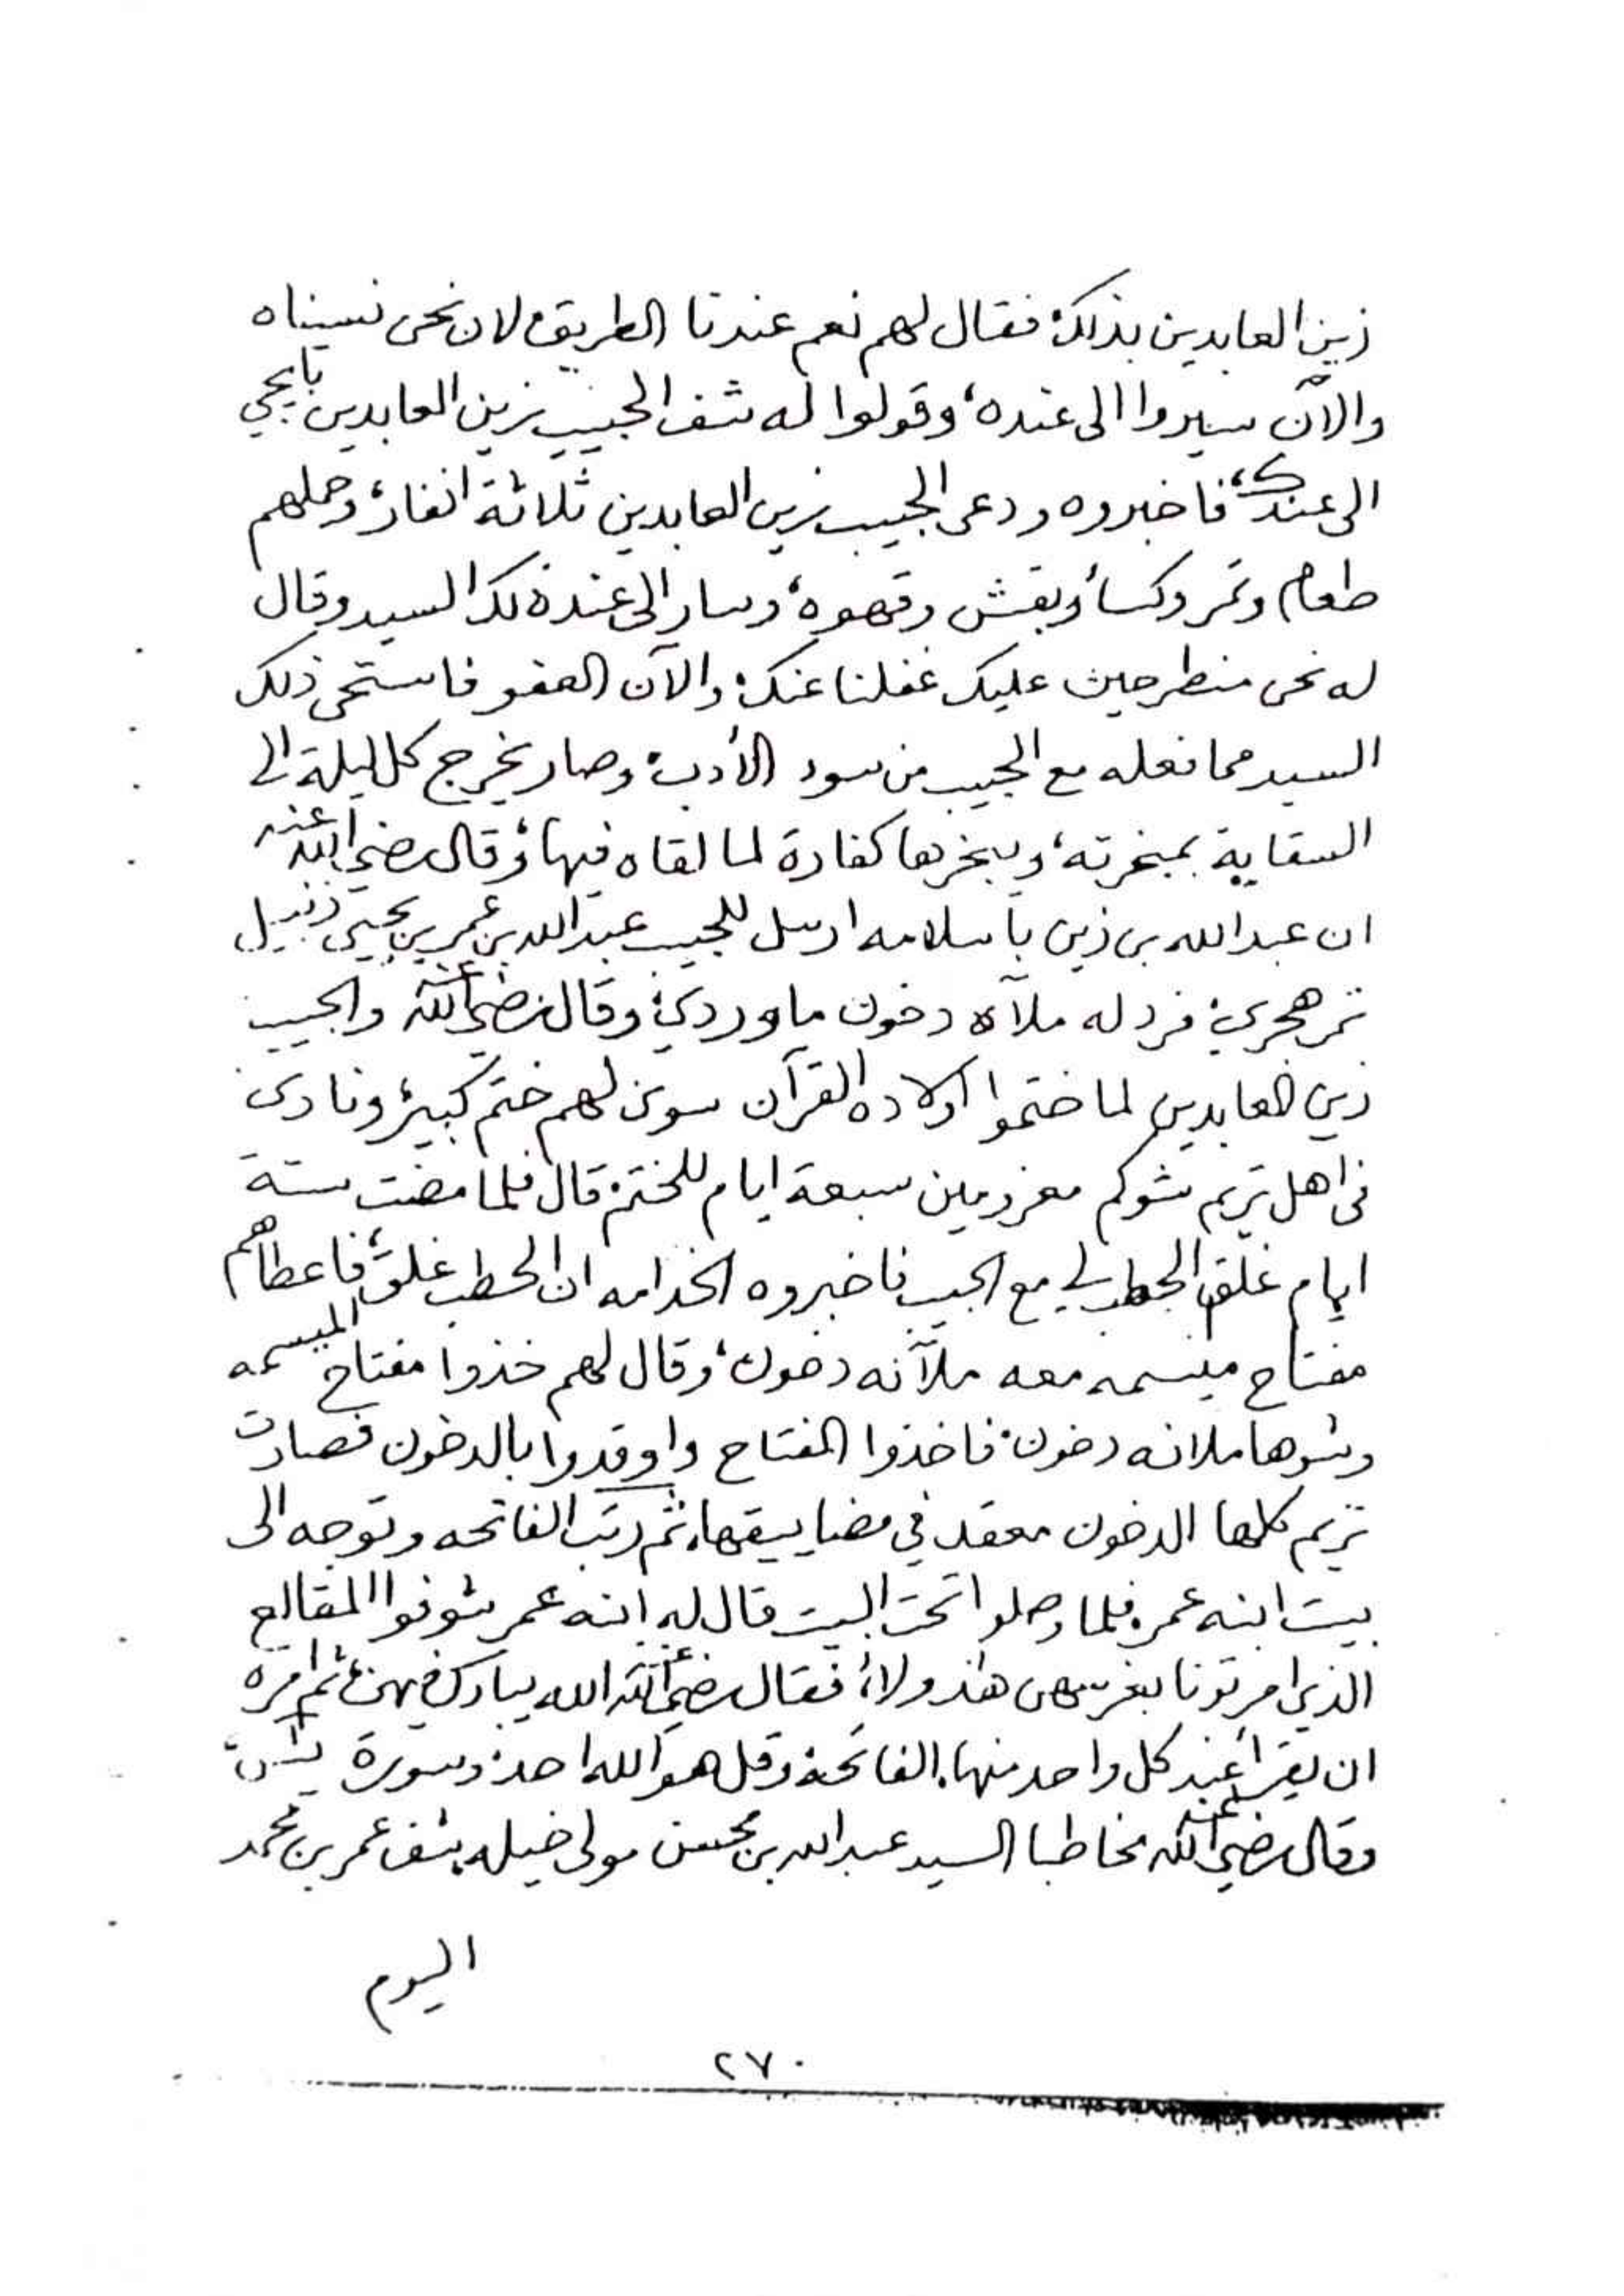 زين العابدين بذلك، فقال لهم نعم عندنا الطريق، لان نحن نسيناه
والآن سيروا الى عنده، وقولوا له شف الحبيب زين العابدين بايجي
الى عندك، فاخبروه ودعى الحبيب زين العابدين ثلاثة انفار، وحملهم
طعام وتمر وكسأ وبقش وقهوه، وسار الى عند ذلك السيد وقال
له نحن منطرحين عليك غفلنا عنك، والآن العفو فاستحى ذلك
السيد مما فعله مع الحبيب من سوء الأدب، وصار يخرج كل ليلة الى
السقاية بمبخرته، ويبخرها كفارة لما لقاه فيها، وقال رضي الله عنه
ان عبدالله بن زين باسلامه ارسل للحبيب عبدالله بن عمر بن يحيى زنبيل
تمر هجري، فرد له ملآه دخون ماوردي، وقال رضي الله عنه والحبيب
زين العابدين لما ختموا أولاده القرآن سوى لهم ختم كبير، ونادى
في اهل تريم شوكم معزومين سبعة ايام للختم، قال فلما مضت ستة
ايام غلق الحطب لي مع الحبيب فاخبروه الخدامه ان الحطب غلق، فاعطاهم
مفتاح ميسمه معه ملآنه دخون، وقال لهم خذوا مفتاح الميسمه
وشوها ملانه دخون، فاخذوا المفتاح واوقدوا بالدخون فصارت
تريم كلها الدخون معقد في مضاييقها، ثم رتب الفاتحه وتوجه الى
بيت ابنه عمر، فلما وصلوا تحت البيت قال له ابنه عمر شوفوا المقالع
الذي امرتونا بغرسهن هذولاء، فقال رضي الله عنه الله يبارك فيهن، ثم امره
ان يقرأ عند كل واحد منها، الفاتحة، وقل هو الله احد، وسورة يس،
وقال رضي الله عنه مخاطبا السيد عبدالله بن محسن مولى خيله، شف عمر بن محمد
اليوم
٢٧٠